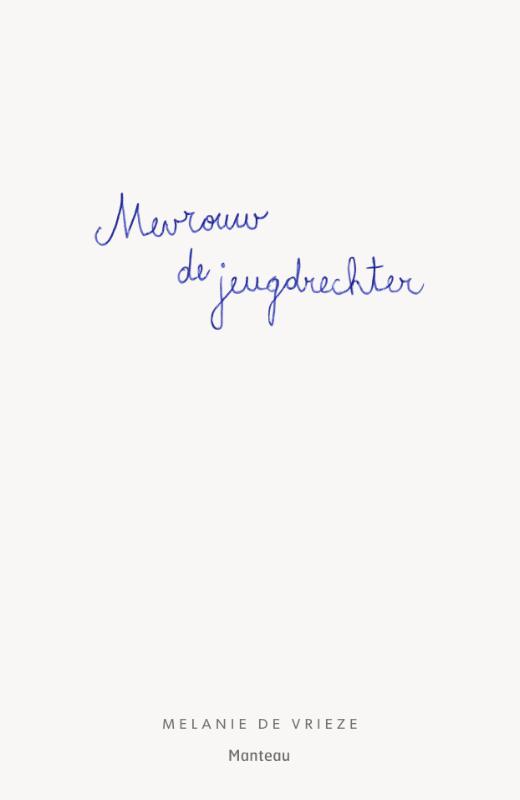 Mevrouw
de jeugdrechter
MELANIE DE VRIEZE
Manteau